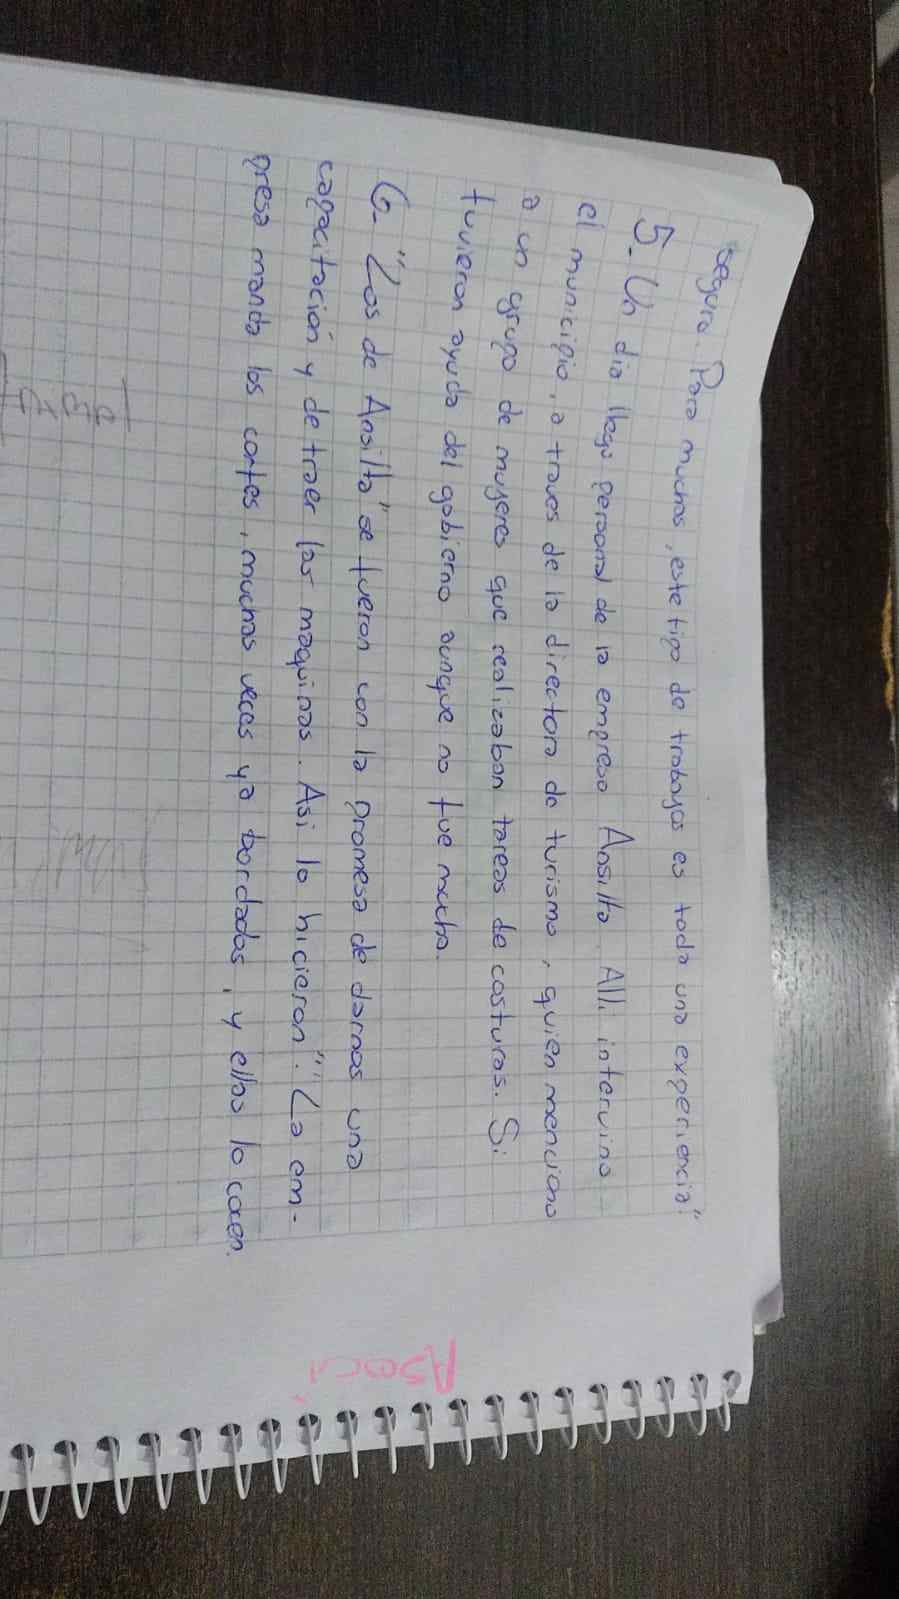 segura. Para muchas, este tipo de trabajos es toda una experiencia"
5. Un dia llego personal de la empresa Ansilta. Alli intervino
el municipio, a traves de la directora de turismo, quien menciono
a un grupo de mujeres que realizaban tareas de costuras. Si
tuvieron ayuda del gobierno aunque no fue mucha.
6. "Los de Ansilta" se fueron con la promesa de darnos una
capacitación y de traer las maquinas. Asi lo hicieron". "La em-
presa manda los cortes, muchas veces ya bordados, y ellas lo cosen.